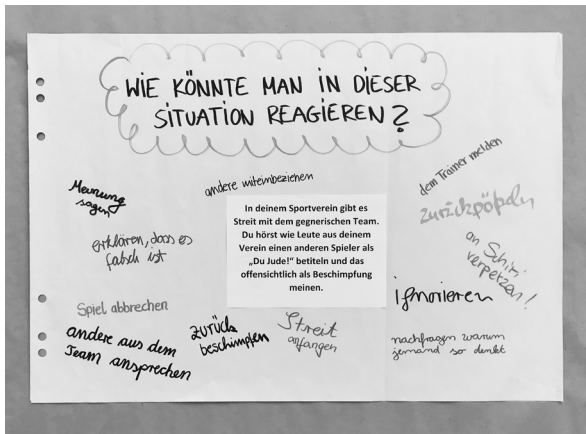 WIE KÖNNTE MAN IN DIESER
SITUATION REAGIEREN?
Meinung
sagen
andere miteinbeziehen
dem Trainer melden
zurückpöbeln
In deinem Sportverein gibt es
Streit mit dem gegnerischen Team.
Du hörst wie Leute aus deinem
Verein einen anderen Spieler als
„Du Jude!“ betiteln und das
offensichtlich als Beschimpfung
meinen.
erklären, dass es
falsch ist
an Schiri
verpetzen!
Spiel abbrechen
ignorieren
andere aus dem
Team ansprechen
zurück
beschimpfen
Streit
anfangen
nachfragen warum
jemand so denkt